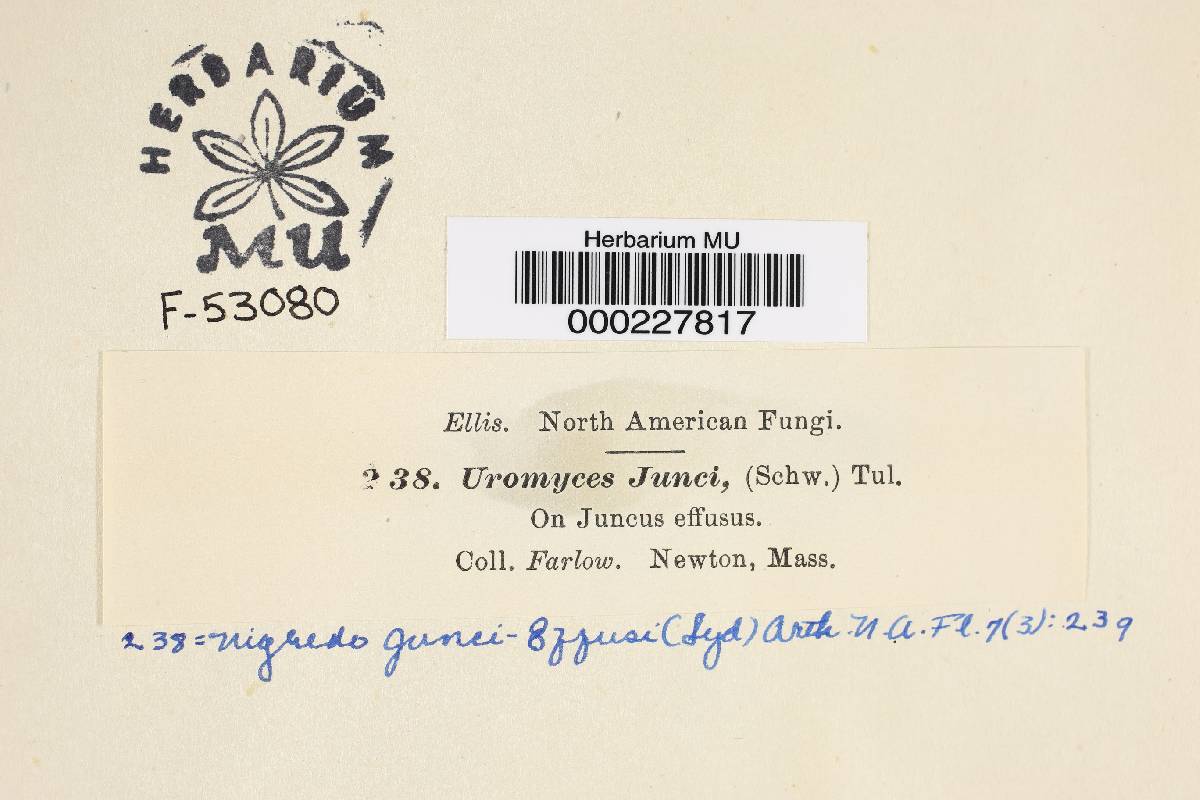 HERBARIUM
MU
F-53080
Herbarium MU
000227817
Ellis. North American Fungi.
238. Uromyces Junci, (Schw.) Tul.
On Juncus effusus.
Coll. Farlow. Newton, Mass.
238=Nigredo Junci-Effusi (Syd) Arth. N.A. Fl. 7(3): 239